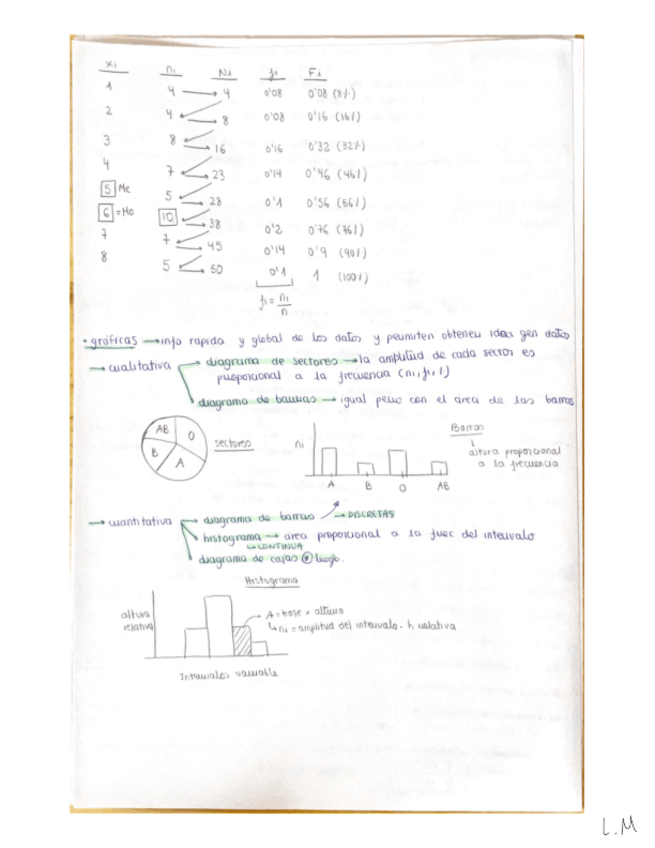 xi ni Ni fi Fi
1 4 4 0'08 0'08 (8%)
2 4 8 0'08 0'16 (16%)
3 8 16 0'16 0'32 (32%)
4 7 23 0'14 0'46 (46%)
5 Me 5 28 0'1 0'56 (56%)
6 = Mo 10 38 0'2 0'76 (76%)
7 7 45 0'14 0'9 (90%)
8 5 50 0'1 1 (100%)
fi = ni/n
· gráficas → info rapida y global de los datos y permiten obtener idea gen datos
→ cualitativa → diagrama de sectores → la amplitud de cada sector es
proporcional a la frecuencia (ni, fi, %)
diagrama de barras → igual pero con el area de las barras
AB O B A sectores
ni A B O AB
Barras
altura proporcional
a la frecuencia
→ cuantitativa → diagrama de barras → DISCRETAS
histograma → area proporcional a la frec del intervalo
↳ CONTINUA
diagrama de cajas luego.
Histograma
altura
relativa
A = base × altura
↳ ni = amplitud del intervalo · h relativa
Intervalos variable
L.M